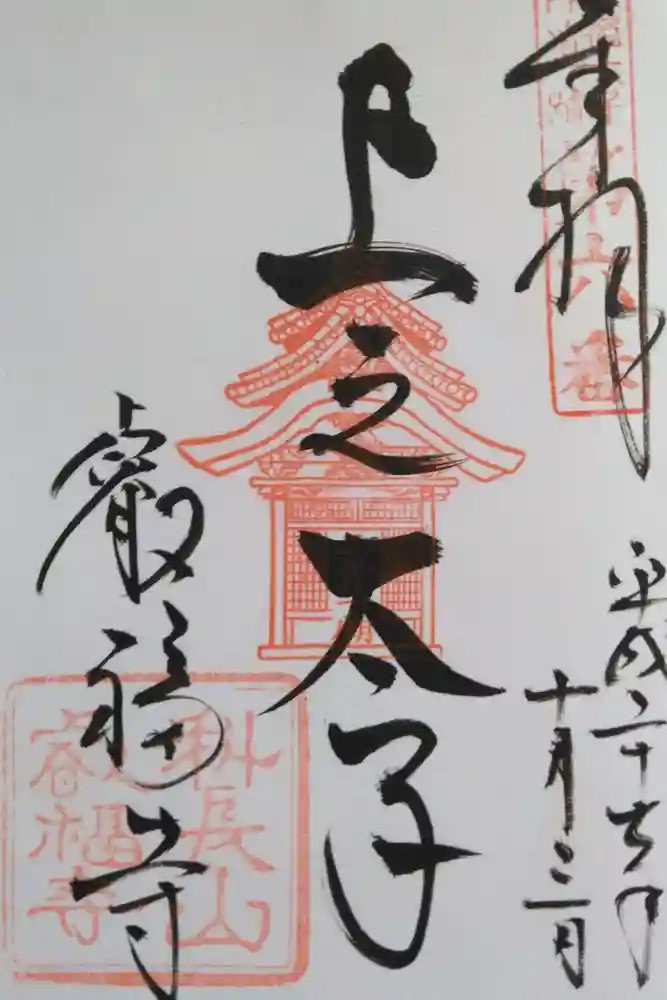 奉拝
平成二十七年
十月三日
上之太子
叡福寺
科長山
叡福寺